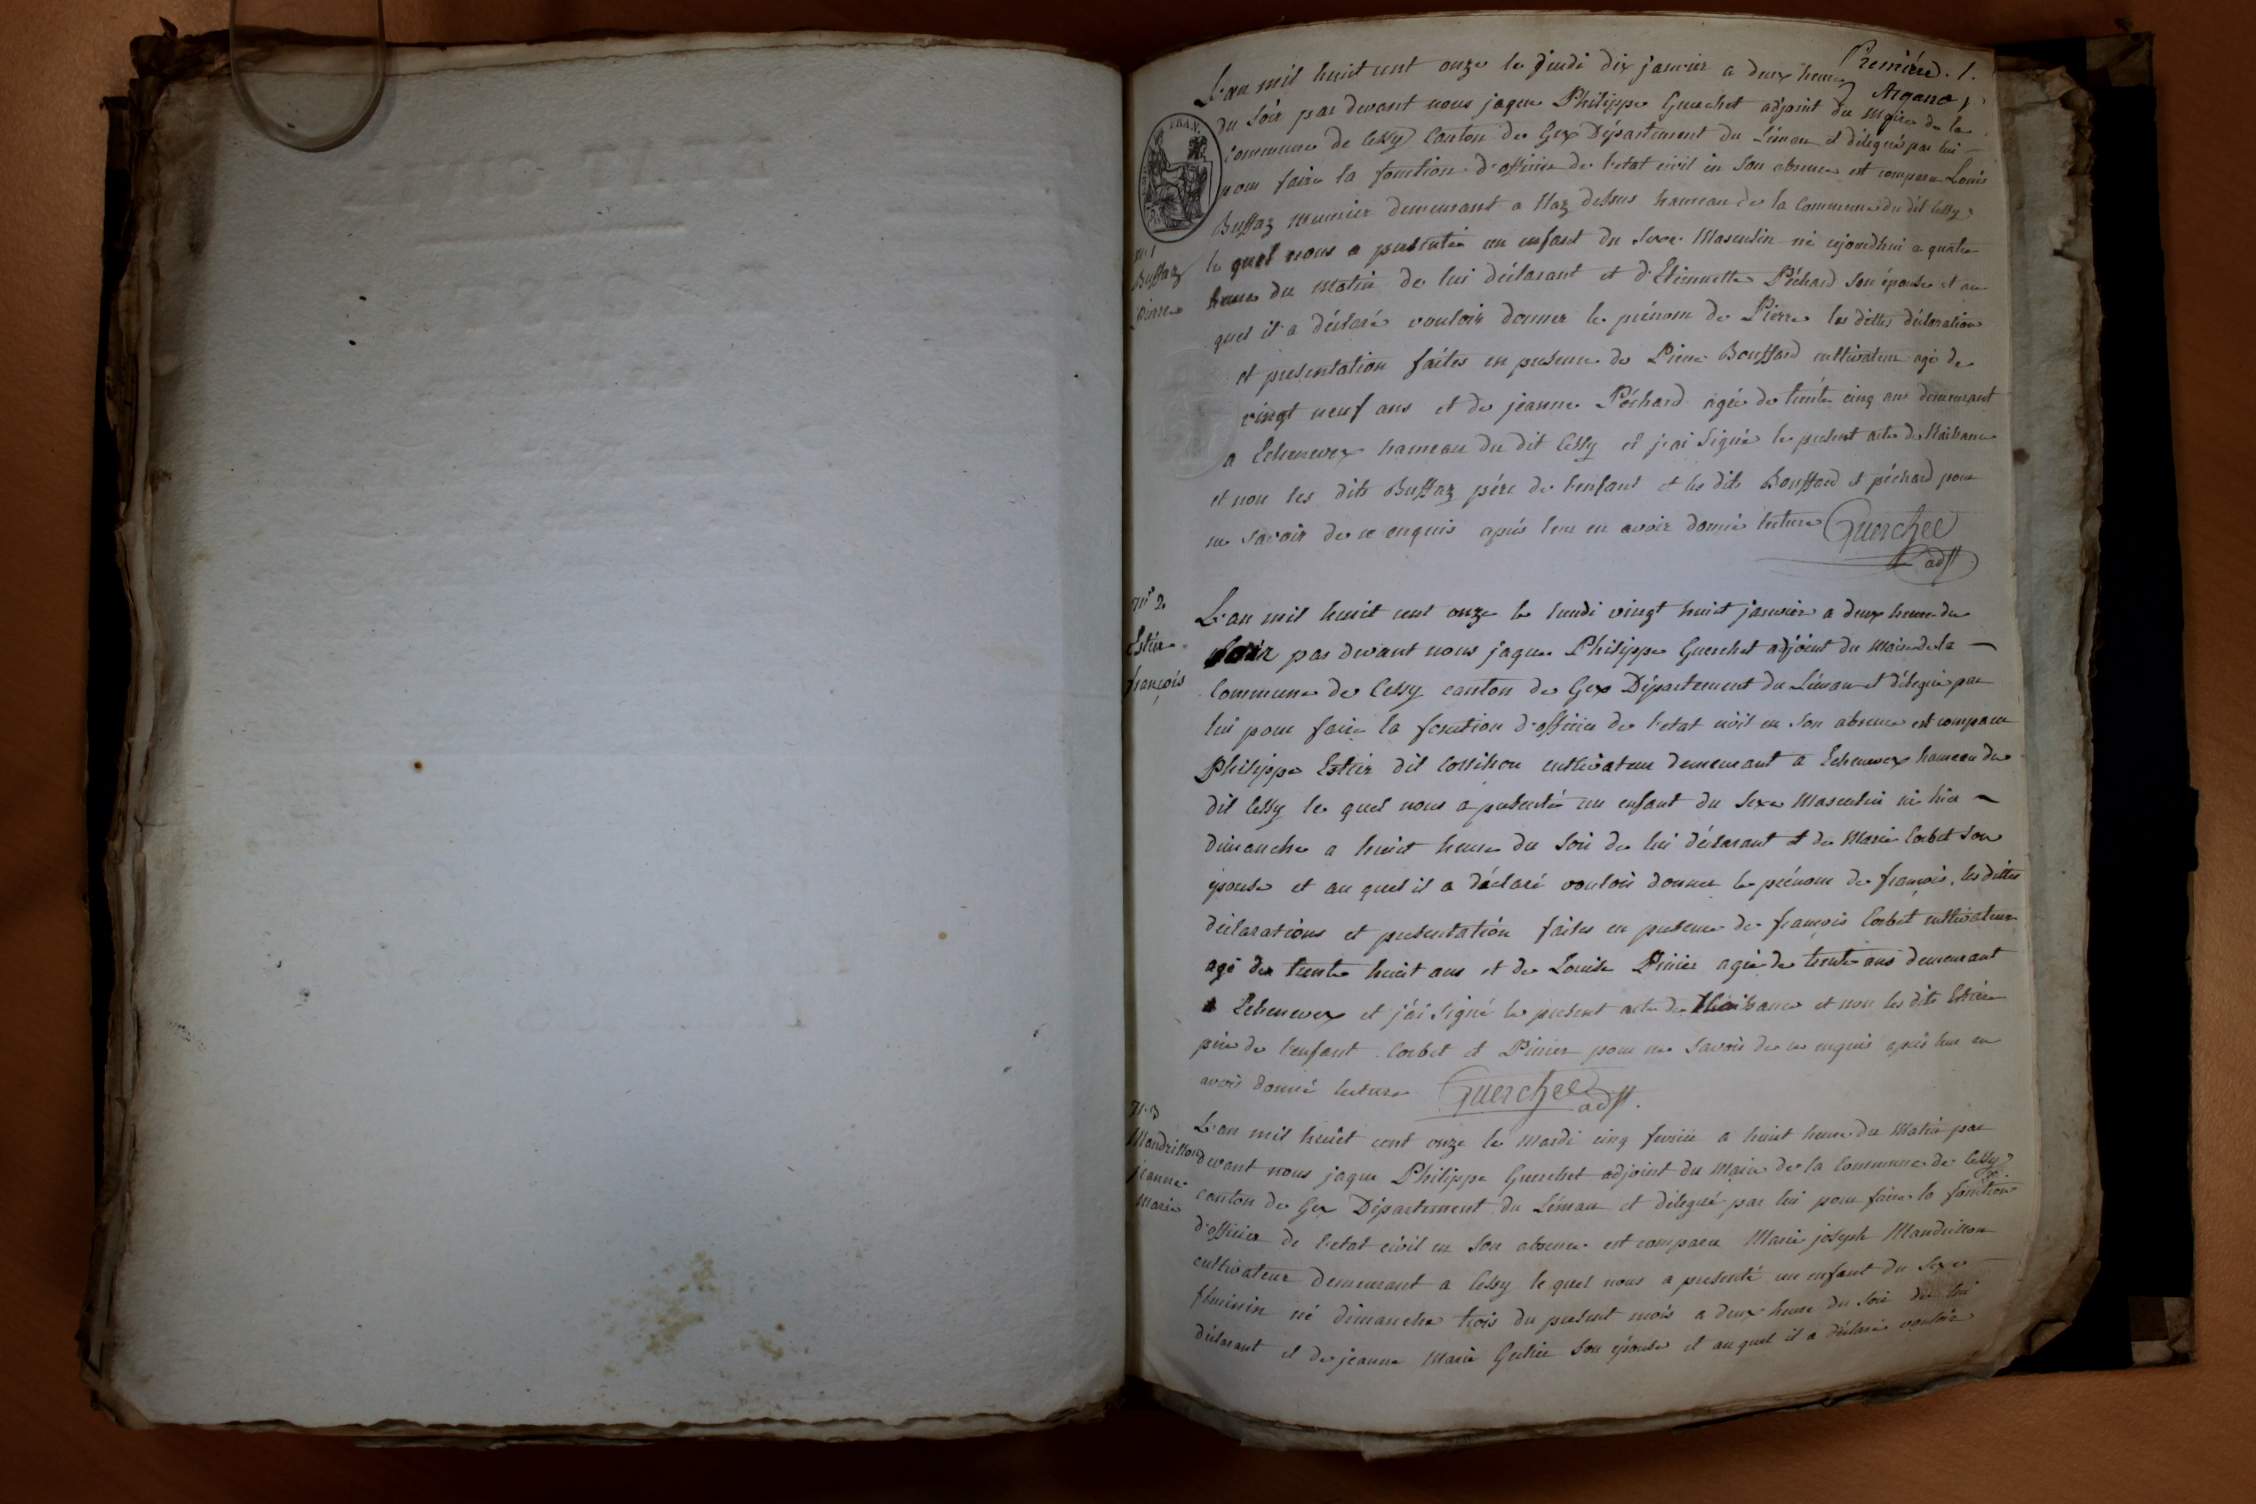 Premiére. 1.
L'an mil huit cent onze le jeudi dix janvier a deux heures
du soir par devant nous jaques Philippe Guerchet adjoint du maire de la
commune de Cessy Canton de Gex Département du Léman et délégué par lui
pour faire la fonction d'officier de l'etat civil en son absence est comparu Louis
Buffaz meunier demeurant a Naz dessus hameau de la Commune du dit Cessy
le quel nous a presentée un enfant du sexe Masculin né cejourdhui a quatre
heures du matin de lui déclarant et d'Etiennette Péchard son épouse et au
quel il a déclaré vouloir donner le prénom de Pierre les dittes déclaration
et presentation faites en presence de Pierre Bouffard cultivateur agé de
vingt neuf ans et de jeanne Péchard agée de trente cinq ans demeurant
a Echenevex hameau du dit Cessy et j'ai signé le present acte de Naissance
et non les dits Buffaz pére de l'enfant et les dits Bouffard et péchard pour
ne savoir de ce enquis aprés leur en avoir donné lecture Guerchet
adjt
n° 1
Buffaz
Pierre
n° 2
Estier
françois
L'an mil huit cent onze le lundi vingt huit janvier a deux heures du
soir par devant nous jaques Philippe Guerchet adjoint du maire de la
Commune de Cessy canton de Gex Département du Léman et délegué par
lui pour faire la fonction d'officier de l'etat civil en son absence est comparu
Philippe Estier dit cultivateur demeurant a Echenevex hameau du
dit Cessy le quel nous a presentée un enfant du sexe Masculin né hier
dimanche a huit heures du soir de lui déclarant et de Marie Corbet son
épouse et au quel il a déclaré vouloir donner le prénom de françois, les dittes
déclarations et presentation faites en presence de françois Corbet cultivateur
agé de trente huit ans et de Louise Pinier agée de trente ans demeurant
a Echenevex et j'ai signé le present acte de Naissance et non les dits Estier
pére de l'enfant Corbet et Pinier pour ne savoir de ce enquis aprés leur en
avoir donné lecture Guerchet adjt.
n° 3
Mandrillon
jeanne
Marie
L'an mil huit cent onze le mardi cinq fevrier a huit heures du Matin par
devant nous jaques Philippe Guerchet adjoint du Maire de la Commune de Cessy
canton de Gex Département du Léman et délegué par lui pour faire la fonction
d'officier de l'etat civil en son absence est comparu Marie joseph Mandrillon
cultivateur demeurant a Cessy le quel nous a presenté un enfant du Sexe
féminin né dimanche trois du present mois a deux heures du soir de lui
déclarant et de jeanne Marie son épouse et au quel il a déclaré vouloir